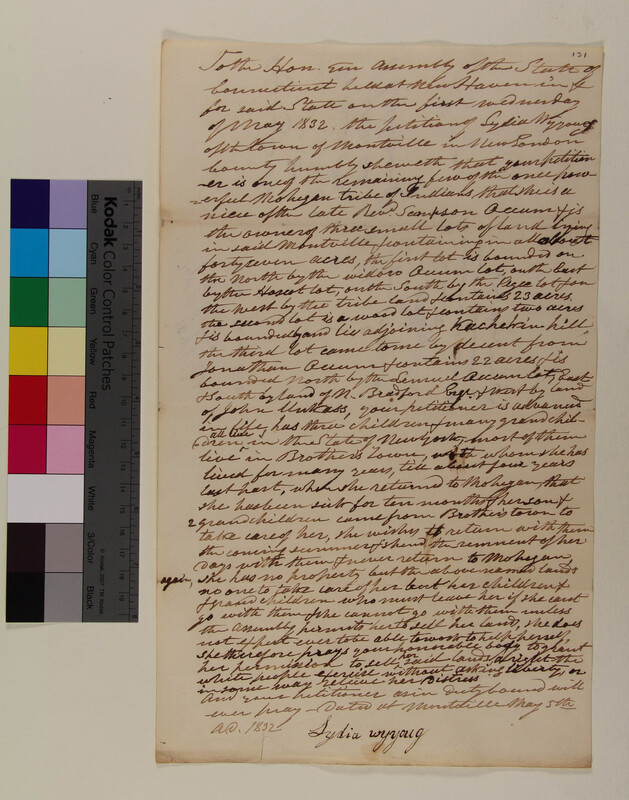 131
To the Hon. Gen Assembly of the State of
Connecticut held at New Haven in &
for said State on the first Wednesday
of May 1832. the petition of Lydia Wyyoug
of the town of Montville in New London
County humbly sheweth that your petition
er is one of the remaining few of the once pow
=erful Mohegan tribe of Indians, that she is a
niece of the late Revd. Sampson Occum & is
the owner of three small lots of land lying
in said Montville, containing in all about
forty seven acres, the first lot is bounded on
the North by the widow Occum lot, on the East
by the Hoscot lot, on the South by the Pege lot, & on
the west by the tribe land & contains 23 acres
the second lot is a wood lot, & contains two acres
& is bounded and lies adjoining hill
the third lot came to me by decent from
Jonathan Occum & contains 22 acres & is
bounded North by the Lemuel Occum lot, East
& South by land of N. Bradford Esqr. & west by land
of John Unkass, your petitioner is advanced
in life, has three children & many grand chil-
dren all live in the State of New york, most of them
live in Brothers Town, with whom she has
lived for many years, till about four years
last past, when she returned to Mohegan, that
she has been sick for ten months & her son &
2 grandchildren came from Brothertown to
take care of her, she wishes to return with them
the coming summer & spend the remnent of her
days with them & never return to Mohegan
again, she has no property but the above named lands
no one to take care of her but her children &
& grandchildren who must leave her if she cant
go with them & she cannot go with them unless
the Assembly permits her to sell her land, she does
not expect ever to be able to work to help herself
She therefore prays your honorable body to grant
her permission to sell her said lands, a right the
white people exercise without asking liberty, or
in some way relieve her Distress
And your petitioner as in duty bound will
ever pray - Dated at Montville May 5th
A.D. 1832
Lydia wyyaug
Kodak
Color Control Patches
© Kodak, 2007 TM: Kodak
Blue
Cyan
Green
Yellow
Red
Magenta
White
3/Color
Black